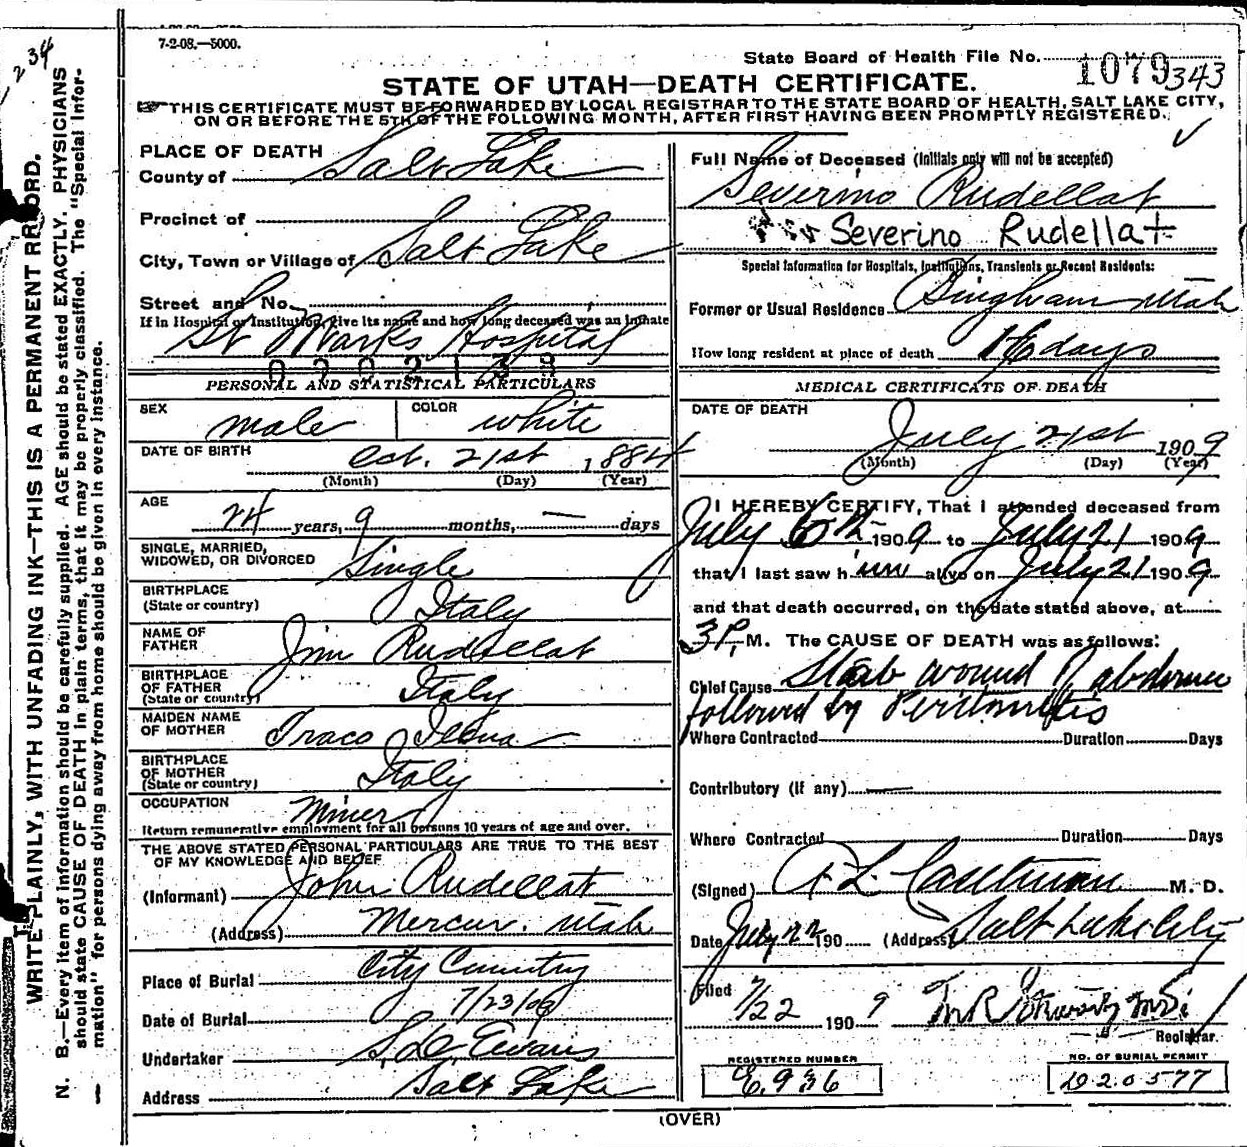 7-2-08.—5000.
State Board of Health File No. 1079 343
STATE OF UTAH—DEATH CERTIFICATE.
THIS CERTIFICATE MUST BE FORWARDED BY LOCAL REGISTRAR TO THE STATE BOARD OF HEALTH, SALT LAKE CITY,
ON OR BEFORE THE 5TH OF THE FOLLOWING MONTH, AFTER FIRST HAVING BEEN PROMPTLY REGISTERED.
234
WRITE PLAINLY, WITH UNFADING INK—THIS IS A PERMANENT RECORD.
N. B.—Every item of information should be carefully supplied. AGE should be stated EXACTLY. PHYSICIANS
should state CAUSE OF DEATH in plain terms, that it may be properly classified. The "Special Infor-
mation" for persons dying away from home should be given in every instance.
PLACE OF DEATH
County of Salt Lake
Precinct of
City, Town or Village of Salt Lake
Street and No.
If in Hospital or Institution, give its name and how long deceased was an inmate
St Marks Hospital
PERSONAL AND STATISTICAL PARTICULARS
SEX male
COLOR white
DATE OF BIRTH Oct. 21st 1884
(Month) (Day) (Year)
AGE 24 years, 9 months, — days
SINGLE, MARRIED,
WIDOWED, OR DIVORCED Single
BIRTHPLACE
(State or country) Italy
NAME OF
FATHER Jim Rudellat
BIRTHPLACE
OF FATHER
(State or country) Italy
MAIDEN NAME
OF MOTHER
BIRTHPLACE
OF MOTHER
(State or country) Italy
OCCUPATION Miner
Return remunerative employment for all persons 10 years of age and over.
THE ABOVE STATED PERSONAL PARTICULARS ARE TRUE TO THE BEST
OF MY KNOWLEDGE AND BELIEF
(Informant) John Rudellat
(Address) Mercur. Utah
Place of Burial City
Date of Burial 7/23/09
Undertaker Evans
Address Salt Lake
Full Name of Deceased (Initials only will not be accepted)
Severino Rudellat
Severino Rudellat
Special Information for Hospitals, Institutions, Transients or Recent Residents:
Former or Usual Residence Bingham Utah
How long resident at place of death 16 days
MEDICAL CERTIFICATE OF DEATH
DATE OF DEATH
July 21st 1909
(Month) (Day) (Year)
I HEREBY CERTIFY, That I attended deceased from
July 6th 1909 to July 21 1909
that I last saw him alive on July 21 1909
and that death occurred, on the date stated above, at
3 P. M. The CAUSE OF DEATH was as follows:
Chief Cause Stab wound of abdomen
followed by Peritonitis
Where Contracted Duration Days
Contributory (if any)
Where Contracted Duration Days
(Signed) M. D.
Date July 22 190 (Address) Salt Lake City
Filed 7/22 1909
Registrar.
REGISTERED NUMBER
E.936
NO. OF BURIAL PERMIT
D20577
(OVER)